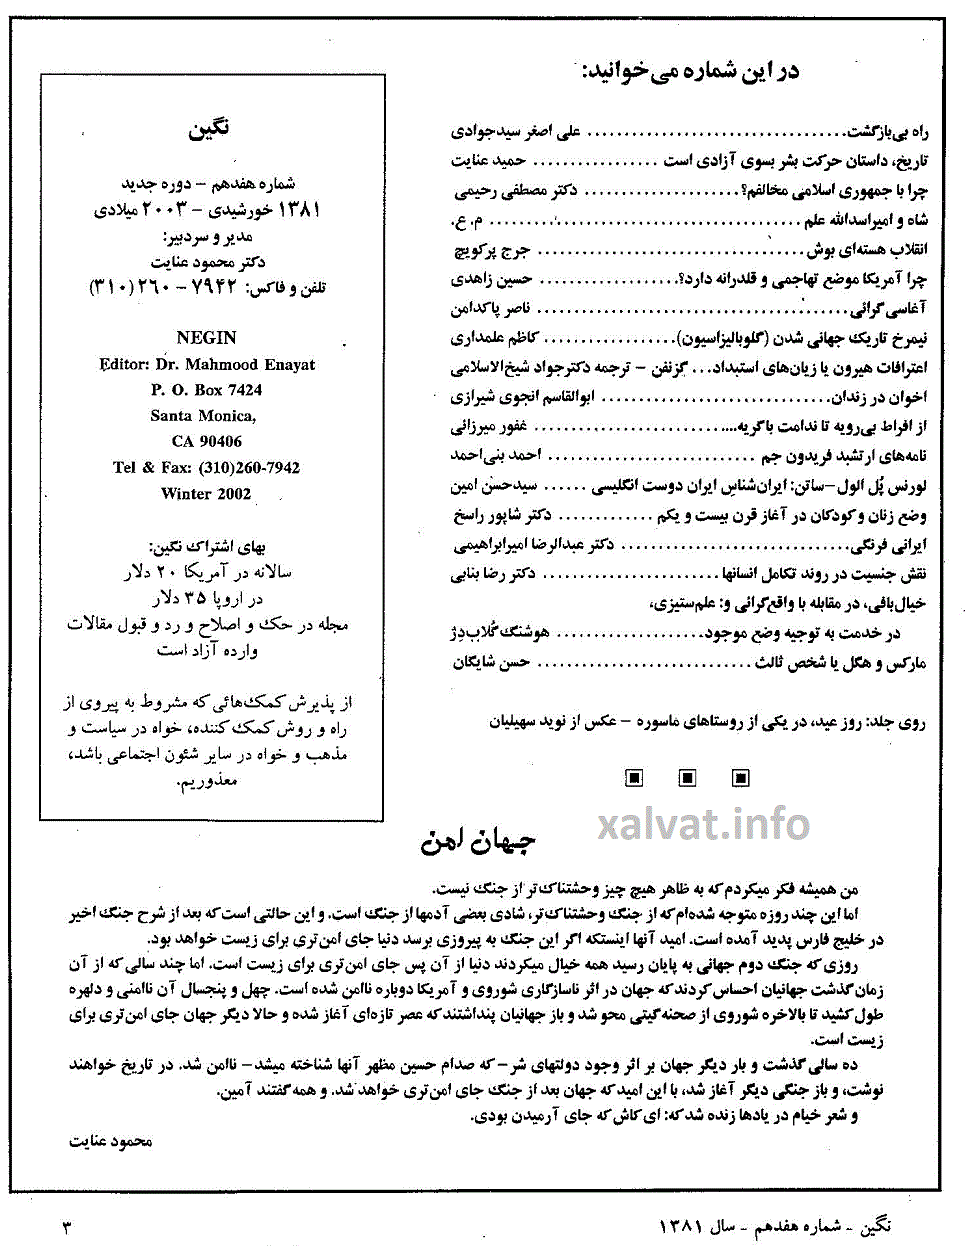 در این شماره می‌خوانید:
راه بی‌بازگشت.................................. علی اصغر سیدجوادی
تاریخ، داستان حرکت بشر بسوی آزادی است ................. حمید عنایت
چرا با جمهوری اسلامی مخالفم؟..................... دکتر مصطفی رحیمی
شاه و امیراسدالله علم .......................................... م. ع.
انقلاب هسته‌ای بوش.................................. جرج پرکویچ
چرا آمریکا موضع تهاجمی و قلدرانه دارد؟.................. حسین زاهدی
آغاسی‌گرائی.......................................... ناصر پاکدامن
نیمرخ تاریک جهانی شدن (گلوبالیزاسیون).................. کاظم علمداری
اعترافات هیرون یا زیان‌های استبداد... گزنفن - ترجمه دکترجواد شیخ‌الاسلامی
اخوان در زندان............................... ابوالقاسم انجوی شیرازی
از افراط بی‌رویه تا ندامت باگریه.......................... غفور میرزائی
نامه‌های ارتشبد فریدون جم ............................ احمد بنی‌احمد
لورنس پُل الول-ساتن: ایران‌شناسِ ایران دوست انگلیسی ...... سیدحسن امین
وضع زنان و کودکان در آغاز قرن بیست و یکم ............. دکتر شاپور راسخ
ایرانی فرنگی................................ دکتر عبدالرضا امیرابراهیمی
نقش جنسیت در روند تکامل انسانها........................ دکتر رضا بنایی
خیال‌بافی، در مقابله با واقع‌گرائی و: علم‌ستیزی،
در خدمت به توجیه وضع موجود................... هوشنگ گلاب‌دژ
مارکس و هگل یا شخص ثالث ............................ حسن شایگان
روی جلد: روز عید، در یکی از روستاهای ماسوره - عکس از نوید سهیلیان
نگین
شماره هفدهم - دوره جدید
۱۳۸۱ خورشیدی - ۲۰۰۳ میلادی
مدیر و سردبیر:
دکتر محمود عنایت
تلفن و فاکس: ۷۹۴۲ - ۲۶۰(۳۱۰)
NEGIN
Editor: Dr. Mahmood Enayat
P. O. Box 7424
Santa Monica,
CA 90406
Tel & Fax: (310)260-7942
Winter 2002
بهای اشتراک نگین:
سالانه در آمریکا ۲۰ دلار
در اروپا ۳۵ دلار
مجله در حک و اصلاح و رد و قبول مقالات
وارده آزاد است
از پذیرش کمک‌هائی که مشروط به پیروی از
راه و روش کمک کننده، خواه در سیاست و
مذهب و خواه در سایر شئون اجتماعی باشد،
معذوریم.
xalvat.info
جهان امن
من همیشه فکر میکردم که به ظاهر هیچ چیز وحشتناک‌تر از جنگ نیست.
اما این چند روزه متوجه شده‌ام که از جنگ وحشتناک‌تر، شادی بعضی آدمها از جنگ است. و این حالتی است که بعد از شرح جنگ اخیر
در خلیج فارس پدید آمده است. امید آنها اینستکه اگر این جنگ به پیروزی برسد دنیا جای امن‌تری برای زیست خواهد بود.
روزی که جنگ دوم جهانی به پایان رسید همه خیال میکردند دنیا از آن پس جای امن‌تری برای زیست است. اما چند سالی که از آن
زمان گذشت جهانیان احساس کردند که جهان در اثر ناسازگاری شوروی و آمریکا دوباره ناامن شده است. چهل و پنجسال آن ناامنی و دلهره
طول کشید تا بالاخره شوروی از صحنه گیتی محو شد و باز جهانیان پنداشتند که عصر تازه‌ای آغاز شده و حالا دیگر جهان جای امن‌تری برای
زیست است.
ده سالی گذشت و بار دیگر جهان بر اثر وجود دولتهای شر- که صدام حسین مظهر آنها شناخته میشد- ناامن شد. در تاریخ خواهند
نوشت، و باز جنگی دیگر آغاز شد، با این امید که جهان بعد از جنگ جای امن‌تری خواهد شد. و همه گفتند آمین.
و شعر خیام در یادها زنده شد که: ای کاش که جای آرمیدن بودی.
محمود عنایت
نگین - شماره هفدهم - سال ۱۳۸۱
۳